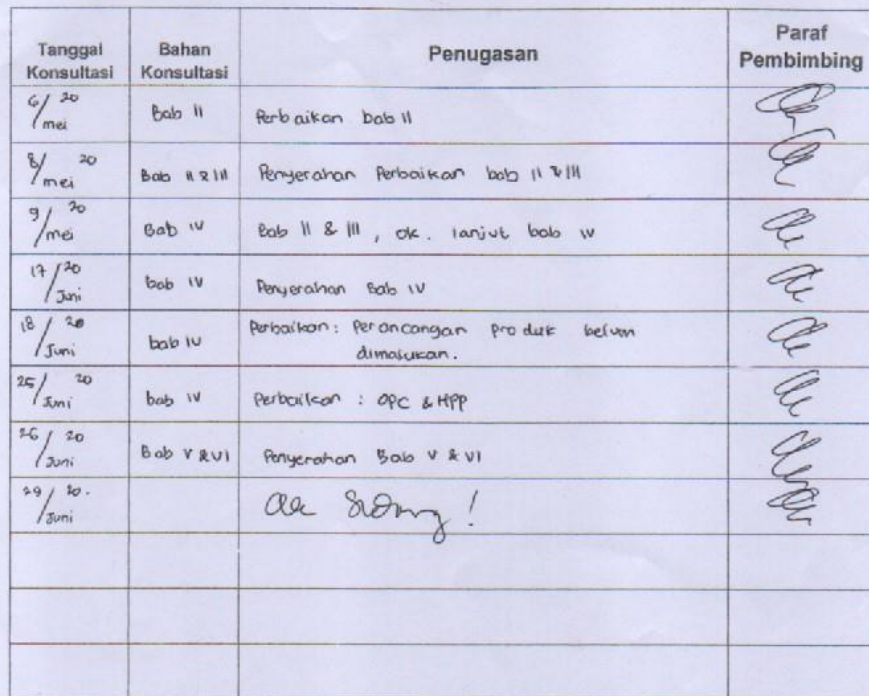 Tanggal Konsultasi Bahan Konsultasi Penugasan Paraf Pembimbing
6/mei 20 Bab II Perbaikan bab II
8/mei 20 Bab II & III Penyerahan Perbaikan bab II & III
9/mei 20 Bab IV Bab II & III, ok. lanjut bab IV
17/Juni 20 bab IV Penyerahan Bab IV
18/Juni 20 bab IV Perbaikan: Perancangan produk belum
dimasukan.
25/Juni 20 bab IV Perbaikan : OPC & HPP
26/Juni 20 Bab V & VI Penyerahan Bab V & VI
29/Juni 20. Sidang!